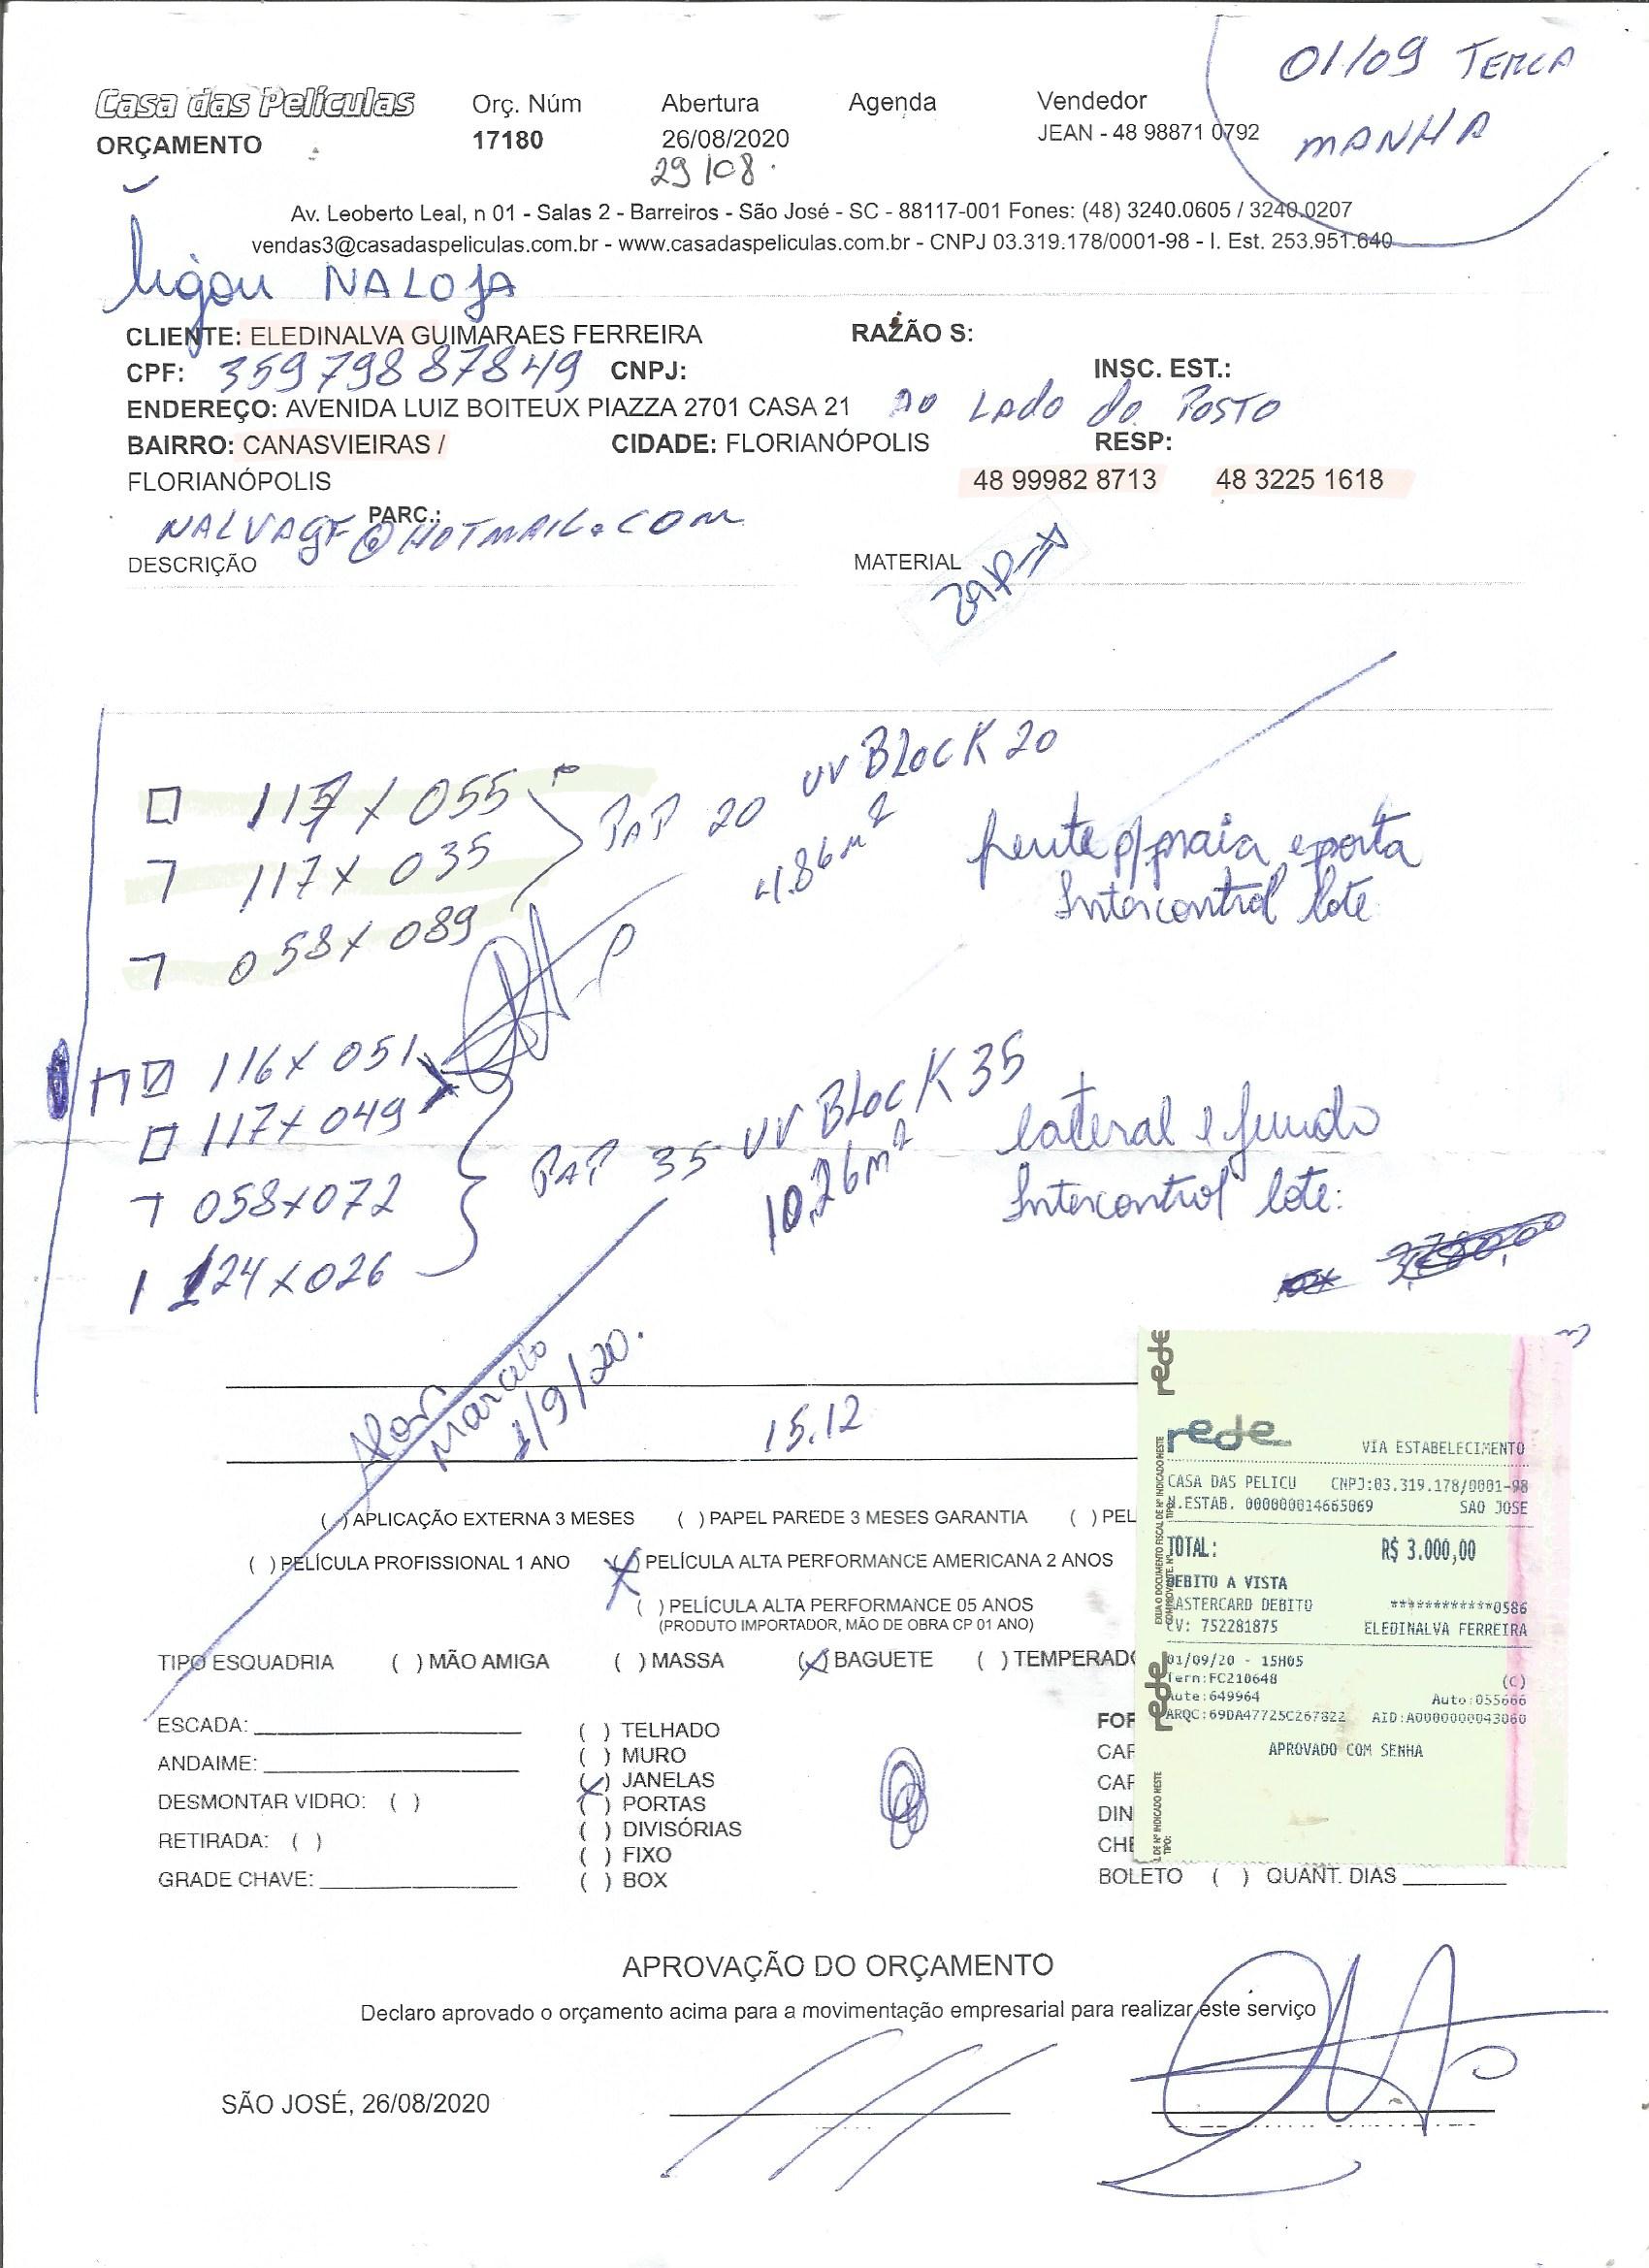 01/09 TERCA
MANHA
Casa das Películas
ORÇAMENTO
Orç. Núm
17180
Abertura
26/08/2020
29/08.
Agenda
Vendedor
JEAN - 48 98871 0792
Av. Leoberto Leal, n 01 - Salas 2 - Barreiros - São José - SC - 88117-001 Fones: (48) 3240.0605 / 3240.0207
vendas3@casadaspeliculas.com.br - www.casadaspeliculas.com.br - CNPJ 03.319.178/0001-98 - I. Est. 253.951.640
ligou NA LOJA
CLIENTE: ELEDINALVA GUIMARAES FERREIRA RAZÃO S:
CPF: 35979887849 CNPJ: INSC. EST.:
ENDEREÇO: AVENIDA LUIZ BOITEUX PIAZZA 2701 CASA 21 AO LADO do POSTO
BAIRRO: CANASVIEIRAS / CIDADE: FLORIANÓPOLIS RESP:
FLORIANÓPOLIS 48 99982 8713 48 3225 1618
PARC.:
NALVAGF@HOTMAIL.COM
DESCRIÇÃO MATERIAL
ZAP
117 X 055
117 X 035
058 X 089
PAP 20 UV BLOCK 20
4.86 m²
frente p/ praia e porta
Intercontrol lote
116 X 051
117 X 049
058 X 072
124 X 026
PAP 35 UV BLOCK 35
10,26 m²
lateral e fundo
Intercontrol lote:
1/9/20.
15.12
( ) APLICAÇÃO EXTERNA 3 MESES ( ) PAPEL PAREDE 3 MESES GARANTIA ( ) PEL
( ) PELÍCULA PROFISSIONAL 1 ANO (X) PELÍCULA ALTA PERFORMANCE AMERICANA 2 ANOS
( ) PELÍCULA ALTA PERFORMANCE 05 ANOS
(PRODUTO IMPORTADOR, MÃO DE OBRA CP 01 ANO)
TIPO ESQUADRIA ( ) MÃO AMIGA ( ) MASSA (X) BAGUETE ( ) TEMPERADO
ESCADA:
ANDAIME:
DESMONTAR VIDRO: ( )
RETIRADA: ( )
GRADE CHAVE:
( ) TELHADO
( ) MURO
(X) JANELAS
( ) PORTAS
( ) DIVISÓRIAS
( ) FIXO
( ) BOX
FOR
CAR
CAR
DIN
CHE
BOLETO ( ) QUANT. DIAS
rede
rede
VIA ESTABELECIMENTO
CASA DAS PELICU CNPJ:03.319.178/0001-98
N.ESTAB. 000000014665069 SAO JOSE
TOTAL: R$ 3.000,00
DEBITO A VISTA
MASTERCARD DEBITO ************0586
CV: 752281875 ELEDINALVA FERREIRA
01/09/20 - 15H05
Term:FC210648 (C)
Aute:649964 Auto:055666
ARQC:69DA47725C267822 AID:A0000000043060
APROVADO COM SENHA
rede
APROVAÇÃO DO ORÇAMENTO
Declaro aprovado o orçamento acima para a movimentação empresarial para realizar este serviço
SÃO JOSÉ, 26/08/2020